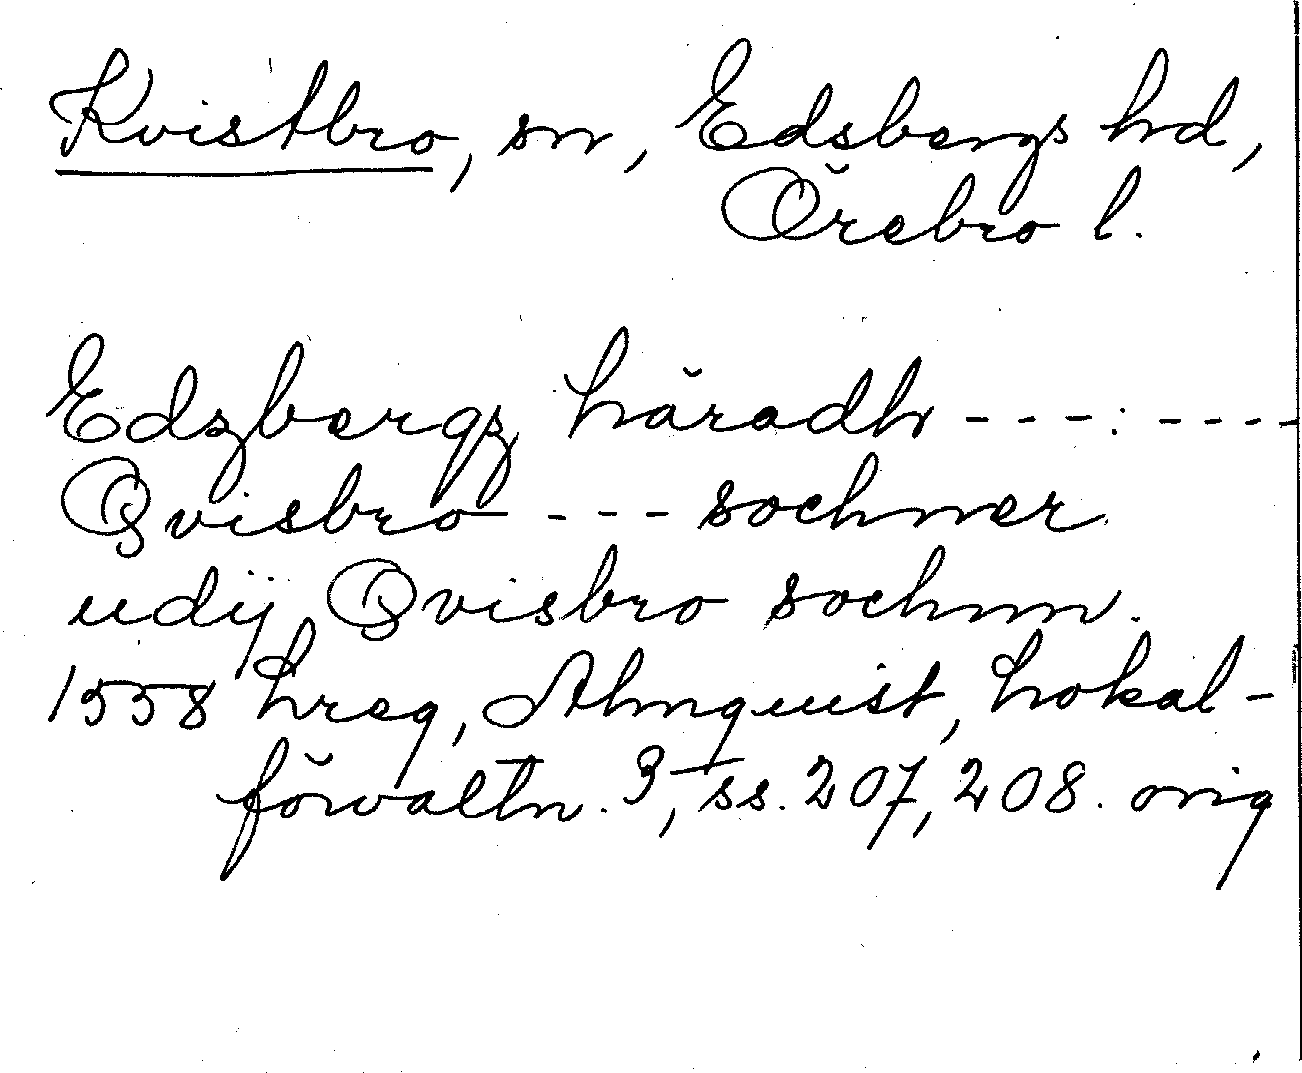 Kvistbro, sn, Edsbergs hd,
Örebro l.
Edzbergz häradh - - - : - - - -
Qvisbro - - - sochner
udij Qvisbro sochnn.
1558 hreg, Almquist, Lokal-
förvaltn. 3, ss. 207, 208. orig